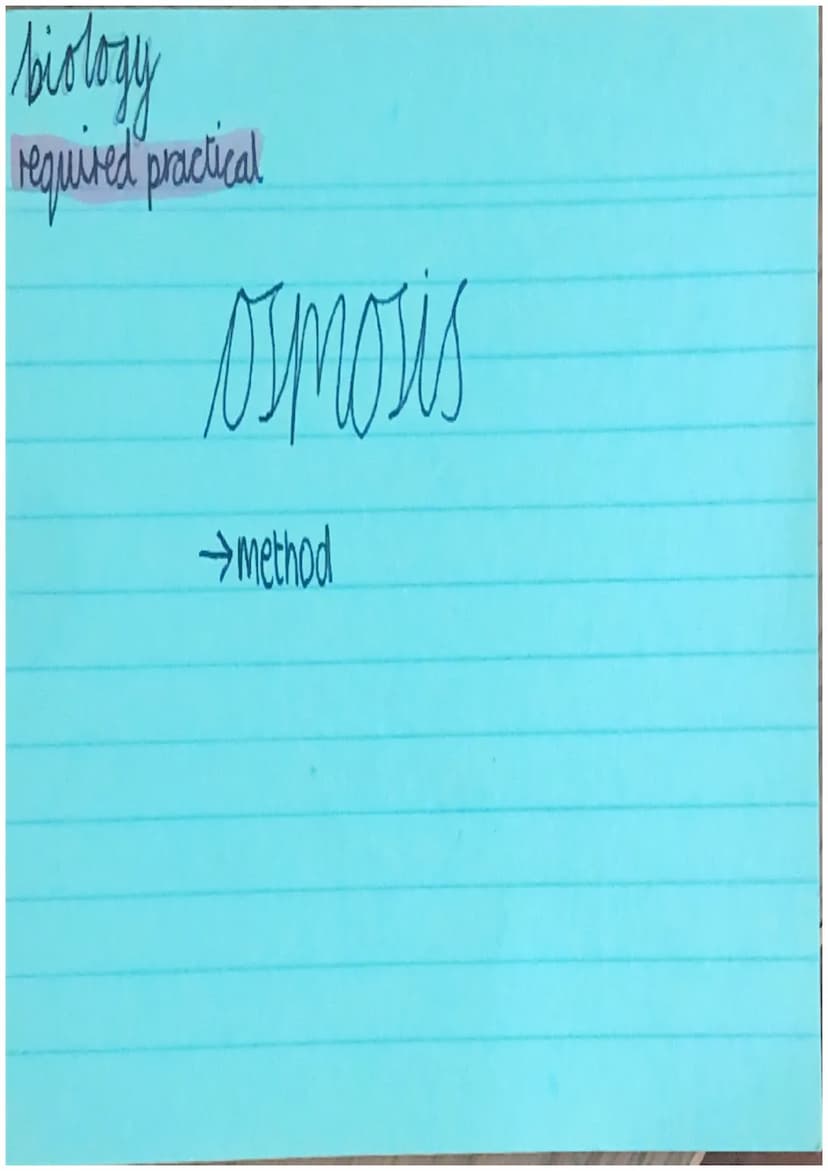 biology
required practical
osmosis
→method